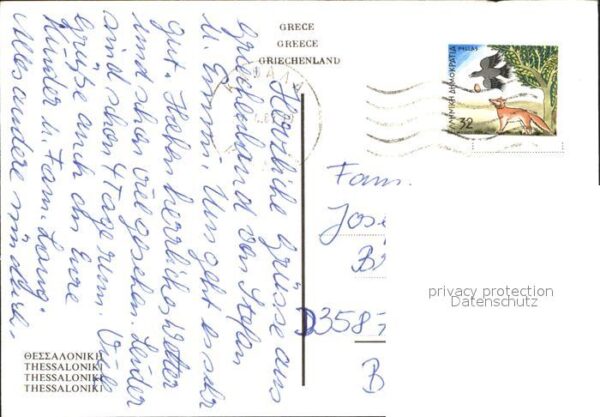 GRECE
GREECE
GRIECHENLAND
ΕΛΛΗΝΙΚΗ ΔΗΜΟΚΡΑΤΙΑ HELLAS
32
Herzliche Grüsse aus
Griechenland von Stefan
u. Emmi. Uns geht es sehr
gut. Haben herrliches Wetter
und schon viel gesehen. Leider
sind schon 4 Tage rum. Viele
Grüße auch an Eure
Kinder u. Fam. Lang.
Alles andere mündl.
Fam.
Jose
B
D3587
B
privacy protection
Datenschutz
ΘΕΣΣΑΛΟΝΙΚΗ
THESSALONIKI
THESSALONIKI
THESSALONIKI